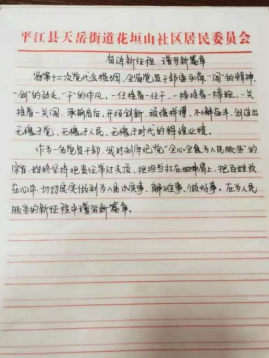 平江县天岳街道花垣山社区居民委员会
奋进新征程 谱写新篇章
省第十二次党代会提出,全省党员干部要永葆“闯”的精神,
“创”的劲头、“干”的作风,一任接着一任干,一棒接着一棒跑,一关
接着一关闯,承前启后,开拓创新,顽强拼搏、不懈奋斗,创造出
无愧于党、无愧于人民、无愧于时代的辉煌业绩。
作为一名党员干部,我时刻牢记党“全心全意为人民服务”的
宗旨,始终坚持把责任举过头顶,把担当扛在肩上,把百姓放
在心中,切切实实做到为人民办实事、解难事、做好事。在为人民
服务的新征程中谱写新篇章。